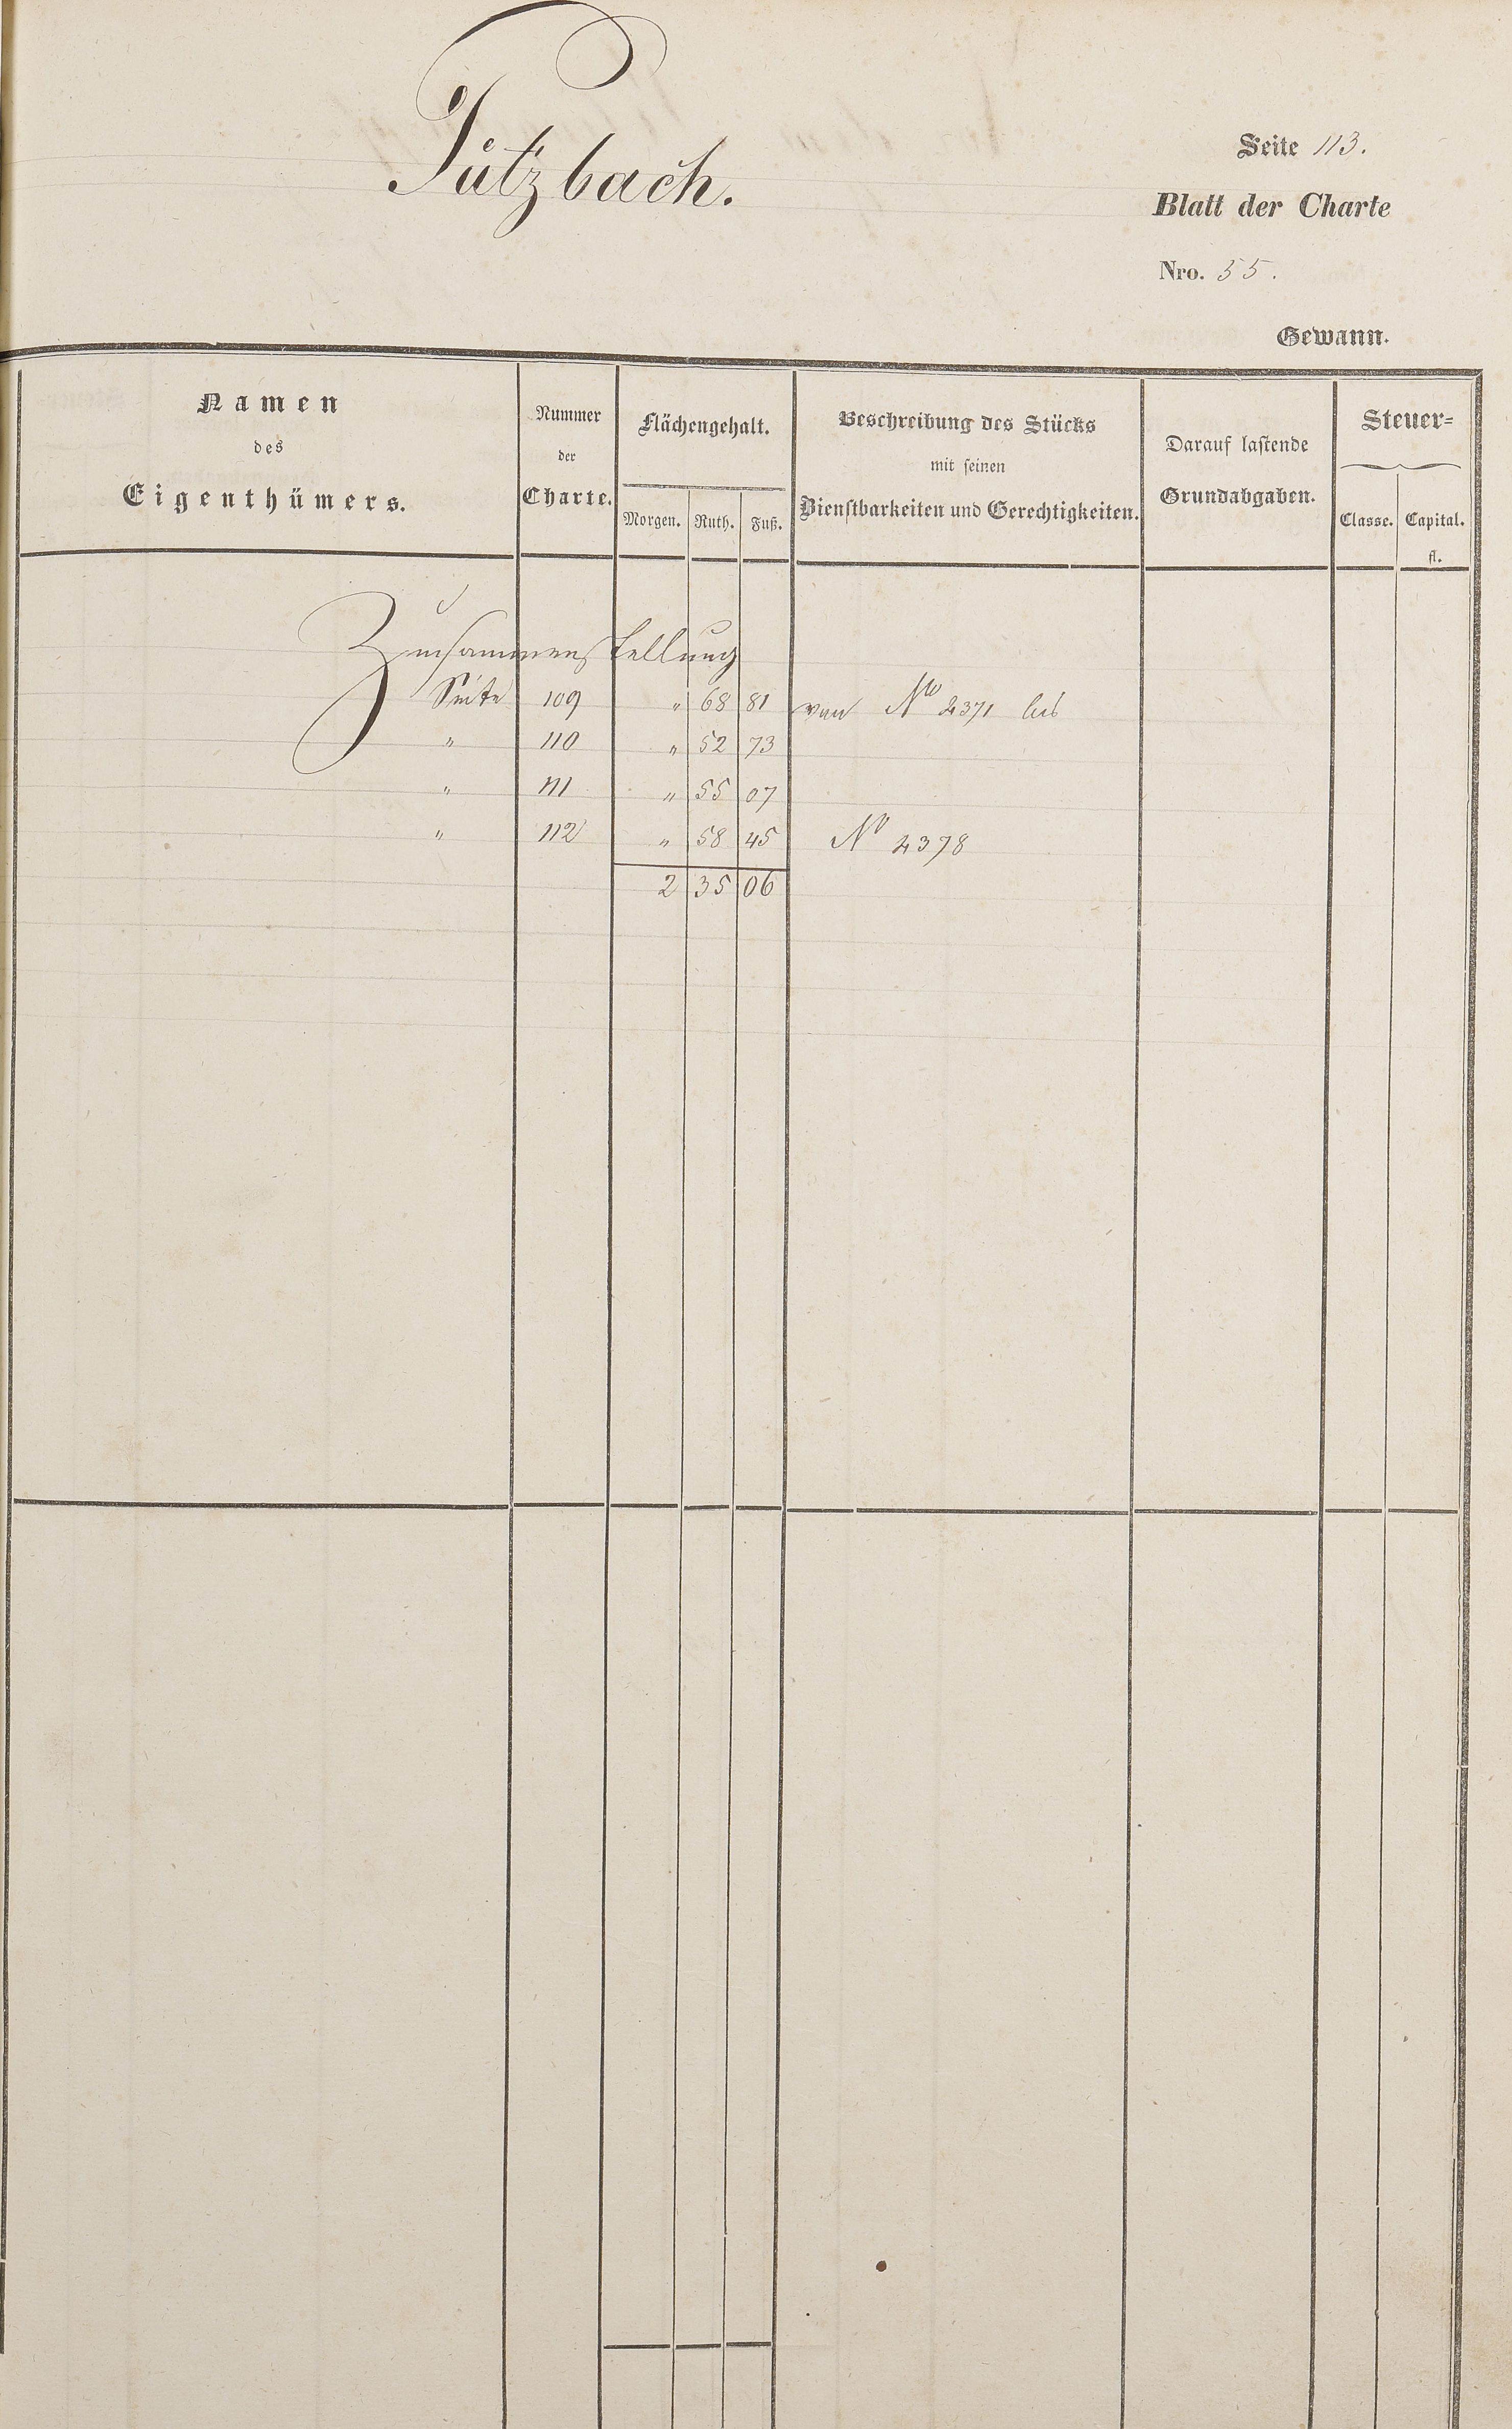 Pützbach.
Seite 113.
Blatt der Charte
Nro. 55.
Gewann.
Namen
des
Eigenthümers.
Nummer
der
Charte.
Flächengehalt.
Morgen. Ruth. Fuß.
Beschreibung des Stücks
mit seinen
Dienstbarkeiten und Gerechtigkeiten.
Darauf lastende
Grundabgaben.
Steuer=
Classe. Capital.
fl.
Zusammenstellung
Seite 109 " 68 81 von No 2371 bis
" 110 " 52 73
" 111 " 55 07
" 112 " 58 45 No 2378
2 35 06